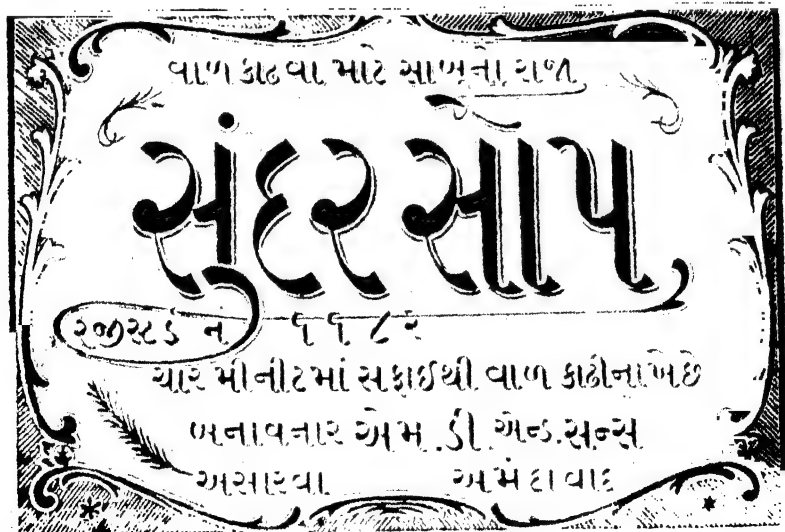 વાળ કાઢવા માટે સાબુનો રાજા
સુંદર સોપ
રજીસ્ટર્ડ નં ૧૧૮૨
ચાર મીનીટમાં સફાઈથી વાળ કાઢીનાખે છે
બનાવનાર એમ. ડી. એન્ડ. સન્સ
અસારવા અમદાવાદ